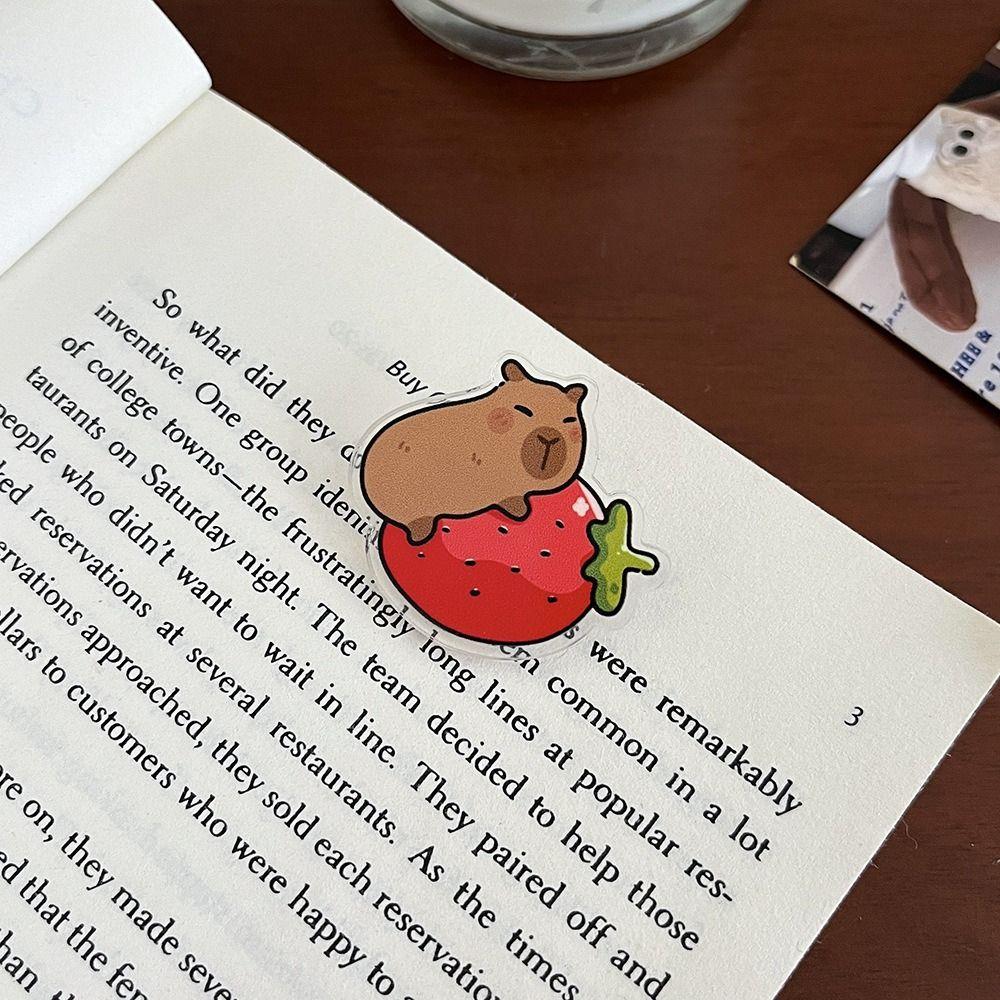 Buy
3
So what did they do were remarkably
inventive. One group identi em common in a lot
of college towns—the frustratingly long lines at popular res-
taurants on Saturday night. The team decided to help those
people who didn't want to wait in line. They paired off and
ked reservations at several restaurants. As the times
ervations approached, they sold each reservation
llars to customers who were happy to
re on, they made seve
ed that the fem
than
1
HHH &